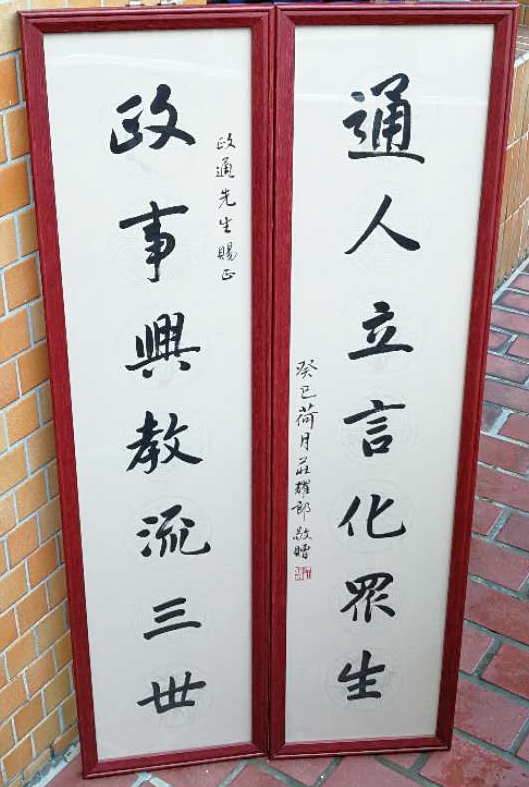 政事興教流三世
政通先生賜正
通人立言化眾生
癸巳荷月莊耀郎敬贈